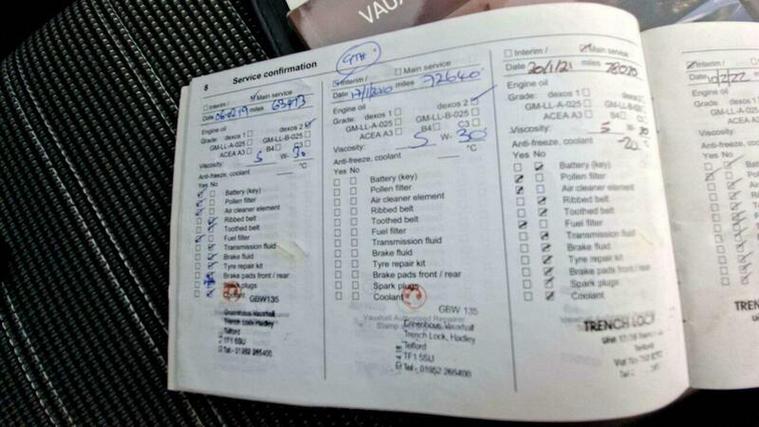 VAUX
8 Service confirmation
Interim / Main service
Date 06.02.19 miles 63473
Engine oil
Grade: dexos 1 dexos 2
GM-LL-A-025 GM-LL-B-025
ACEA A3 B4 C3
Viscosity: 5 W- 30
Anti-freeze, coolant °C
Yes No
Battery (key)
Pollen filter
Air cleaner element
Ribbed belt
Toothed belt
Fuel filter
Transmission fluid
Brake fluid
Tyre repair kit
Brake pads front / rear
Spark plugs
Coolant
GBW135
Greenhous Vauxhall
Trench Lock, Hadley
Telford
TF1 5SU
Tel - 01952 265400
Interim / Main service
Date miles 72640
Engine oil
Grade: dexos 1 dexos 2
GM-LL-A-025 GM-LL-B-025
ACEA A3 B4 C3
Viscosity: 5 W- 30
Anti-freeze, coolant °C
Yes No
Battery (key)
Pollen filter
Air cleaner element
Ribbed belt
Toothed belt
Fuel filter
Transmission fluid
Brake fluid
Tyre repair kit
Brake pads front / rear
Spark plugs
Coolant
GBW 135
Vauxhall Authorised Repairer
Stamp
Greenhous Vauxhall
Trench Lock, Hadley
Telford
TF1 5SU
Tel - 01952 265400
Interim / Main service
Date 20/1/21 miles 78070
Engine oil
Grade: dexos 1 dexos 2
GM-LL-A-025 GM-LL-B-025
ACEA A3 B4 C3
Viscosity: 5 30
Anti-freeze, coolant -20 °C
Yes No
Battery (key)
Pollen filter
Air cleaner element
Ribbed belt
Toothed belt
Fuel filter
Transmission fluid
Brake fluid
Tyre repair kit
Brake pads front / rear
Spark plugs
Coolant
TRENCH LOCK
Telford
Interim /
Date 10/2/22
Engine oil
Grade: dexos 1
GM-LL-A-025
ACEA A3
Viscosity:
Anti-freeze, coolant
Yes No
TREN